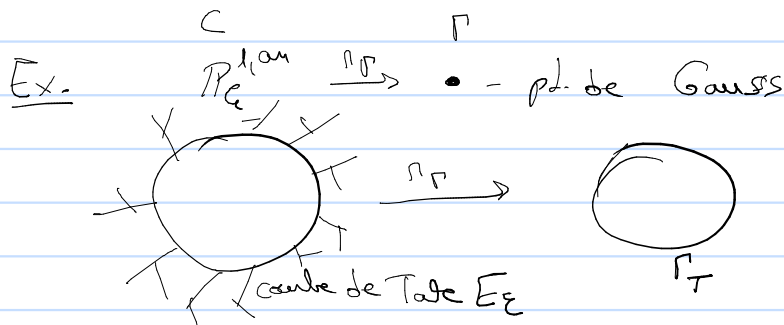 C Γ
Ex. P_ξ^{1,an} r_Γ → • - pt. de Gauss
r_Γ
courbe de Tate E_ξ Γ_T